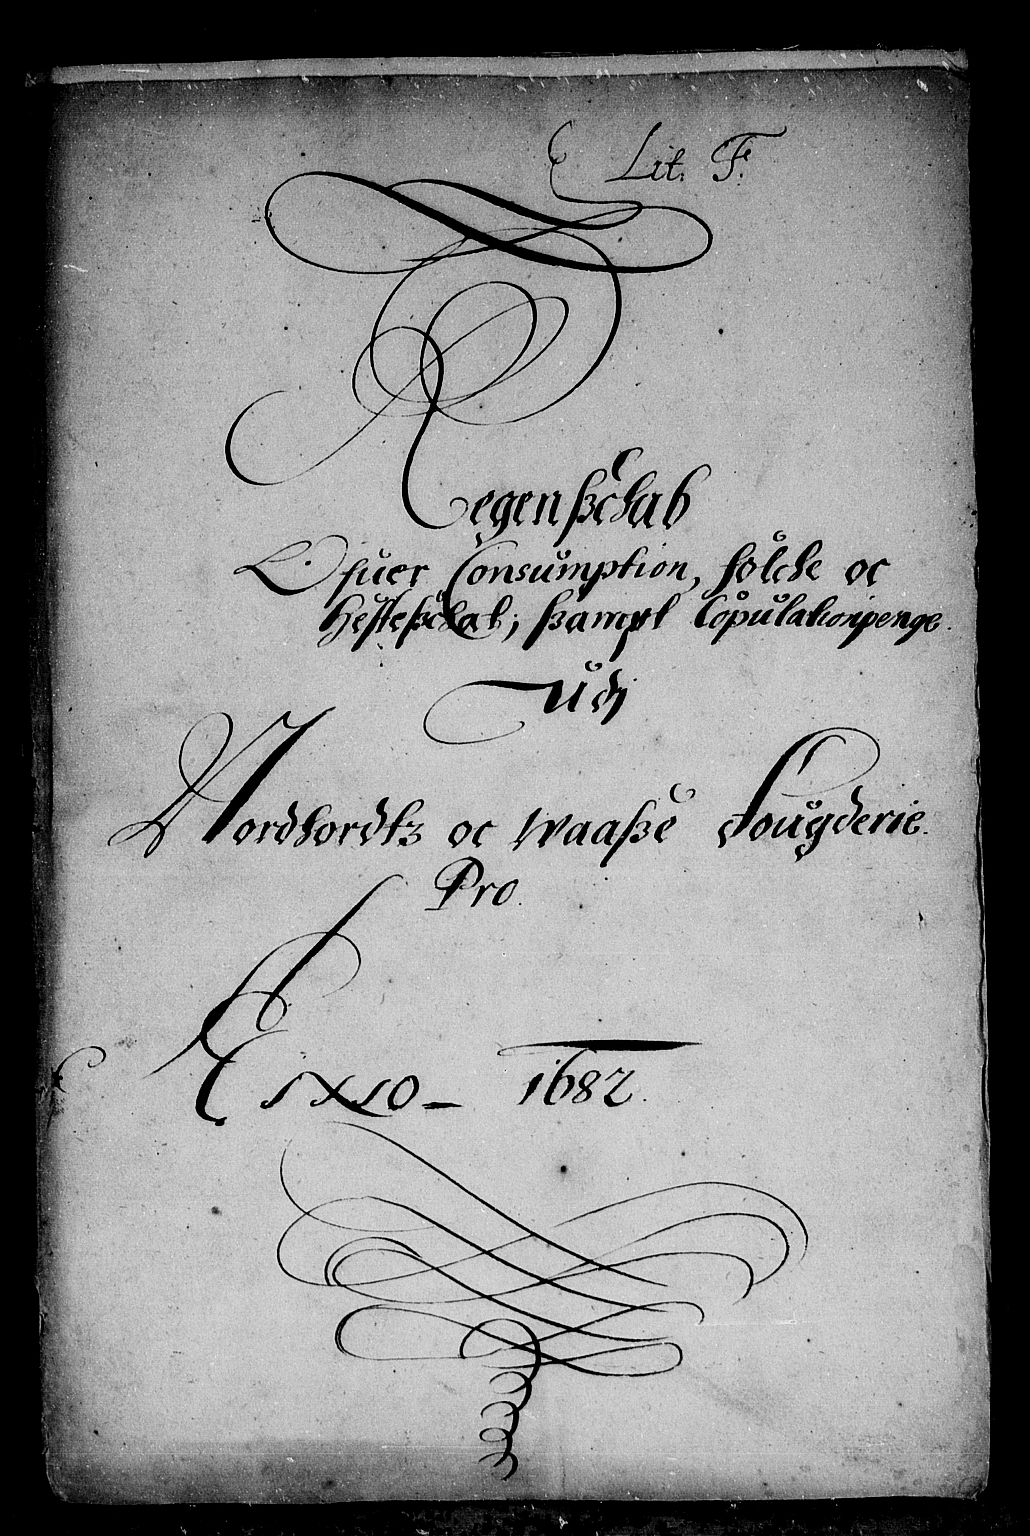 Lit. F.
Regenßchab
Ofuer Consumption, folche oc
Hesteßchat; ßampt Copulationspenge.
Udj
Nordhordtz oc Waaße Fougderie.
Pro.
Anno 1682.